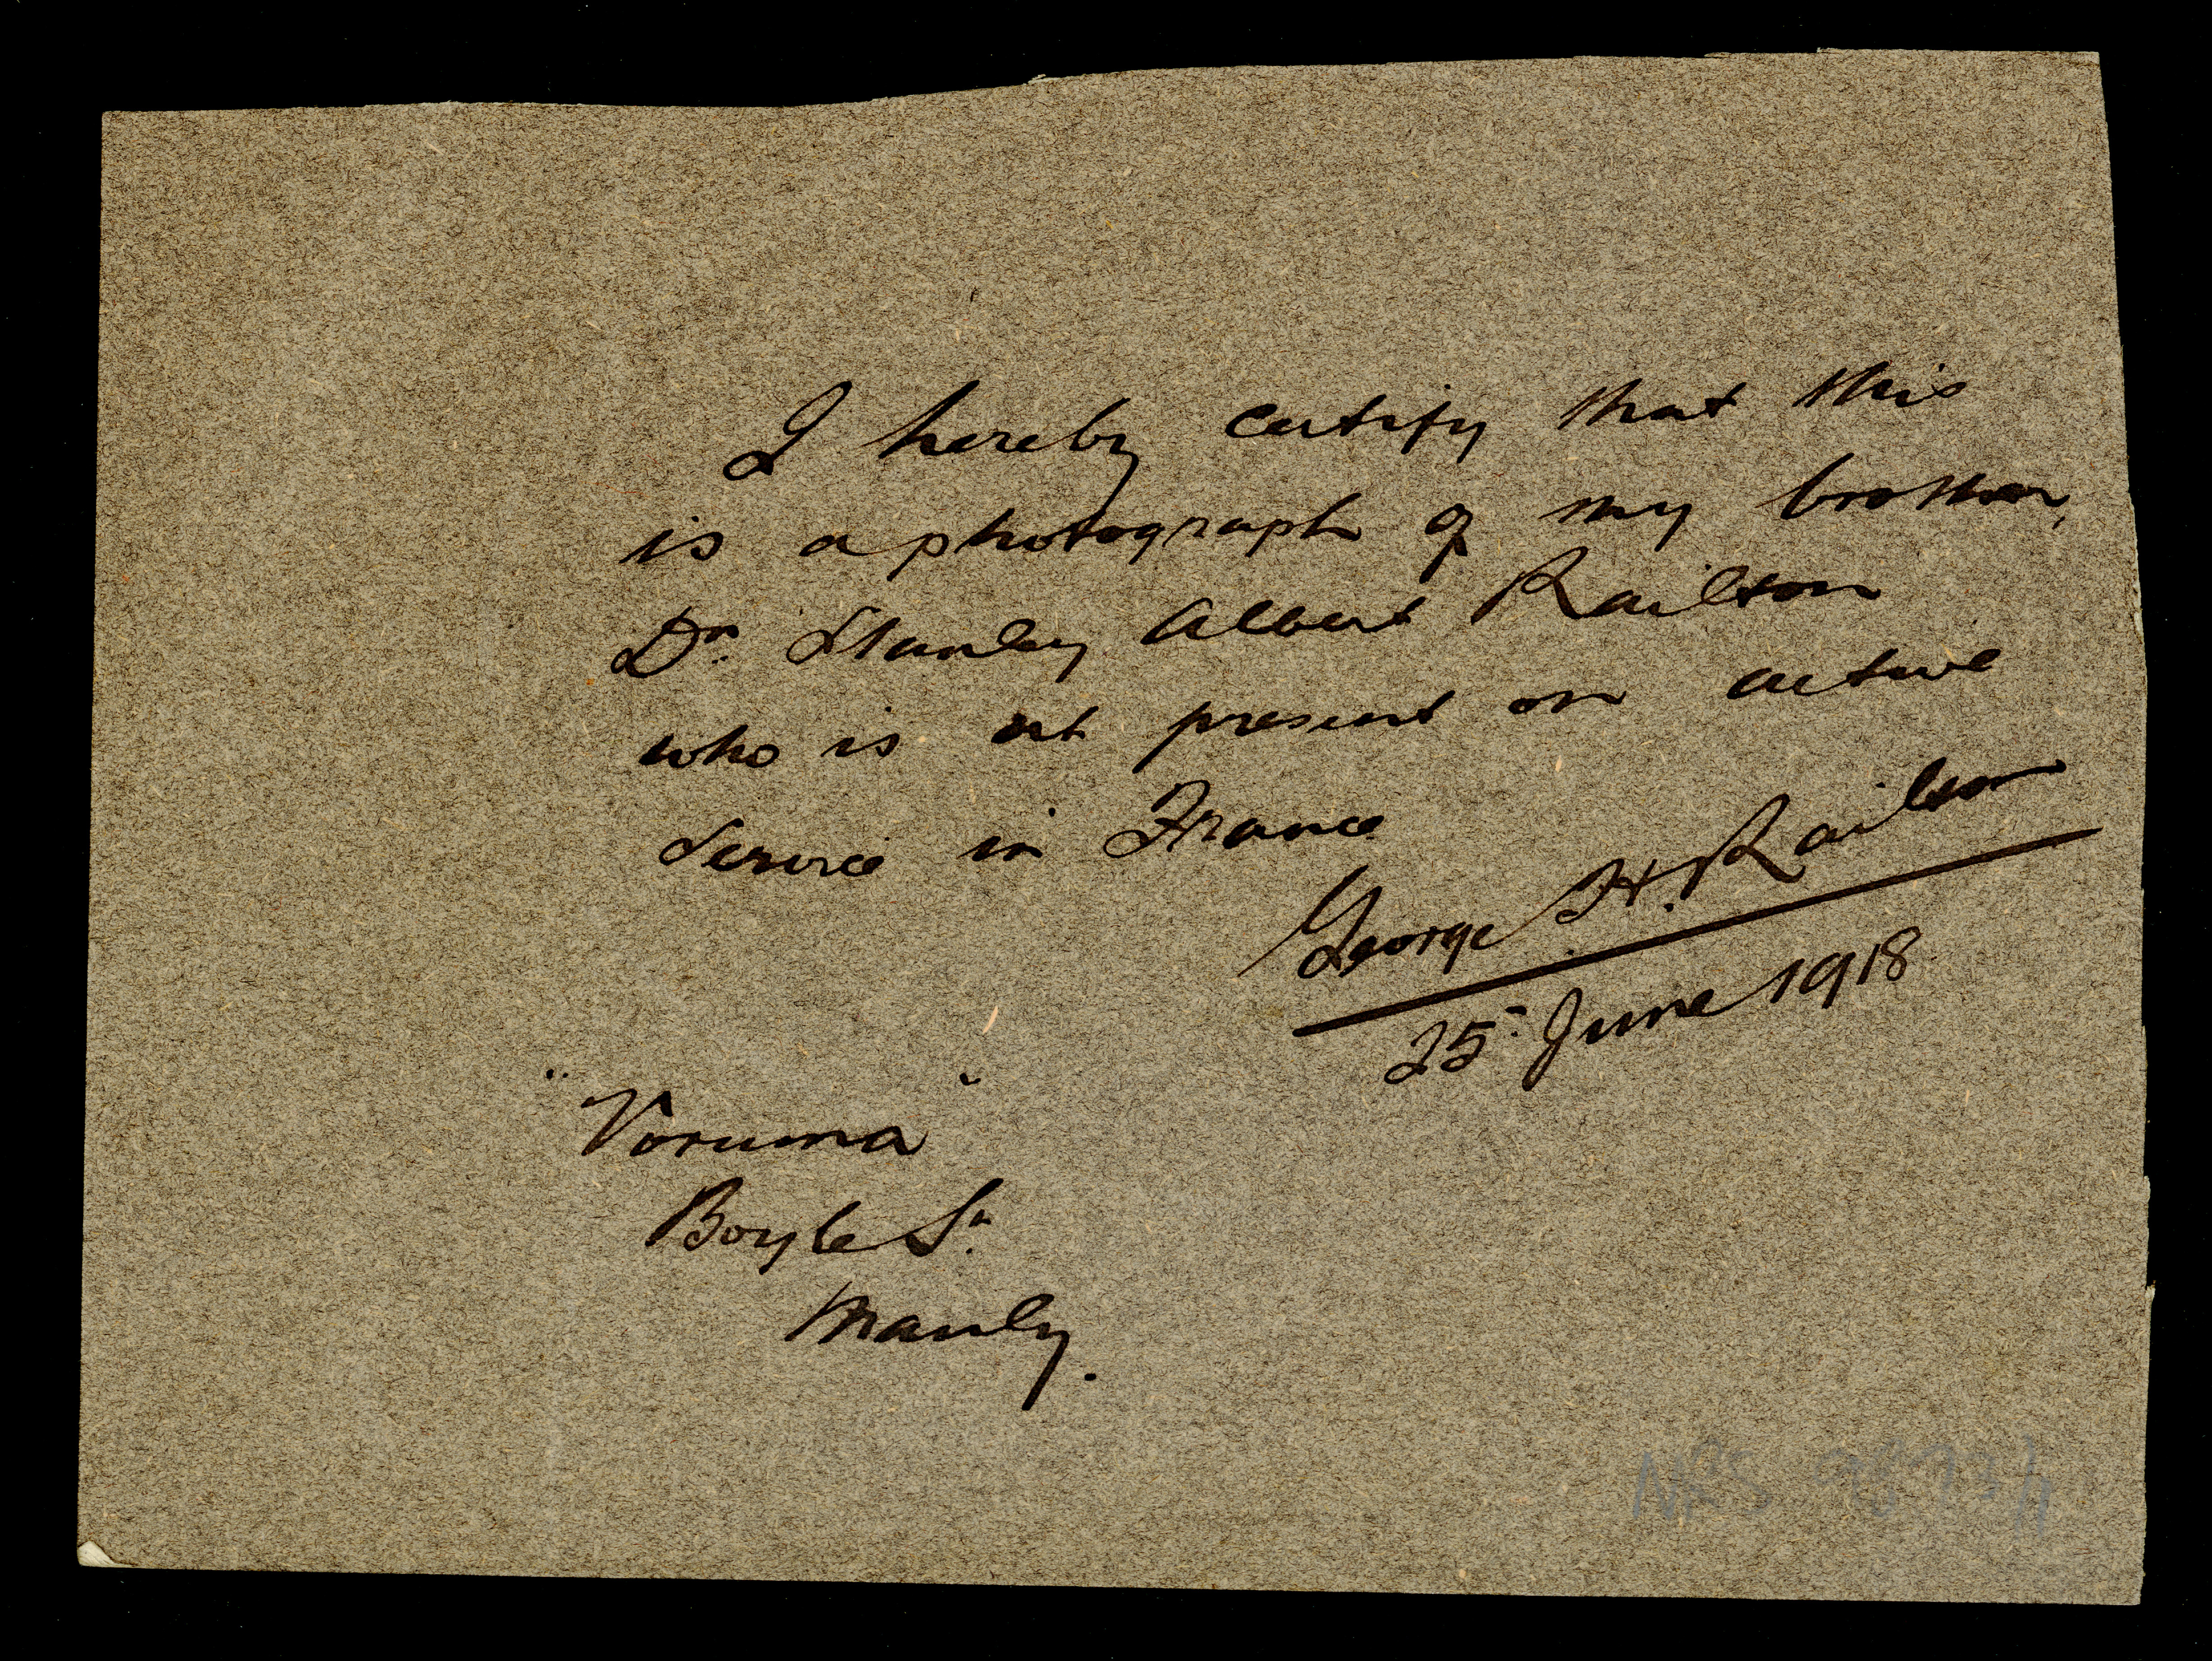 I hereby certify that this
is a photograph of my brother,
Dr. Stanley Albert Railton
who is at present on active
service in France
George H. Railton
25 June 1918
"Voruma"
Boyle St.
Manly.
NRS 9873/1